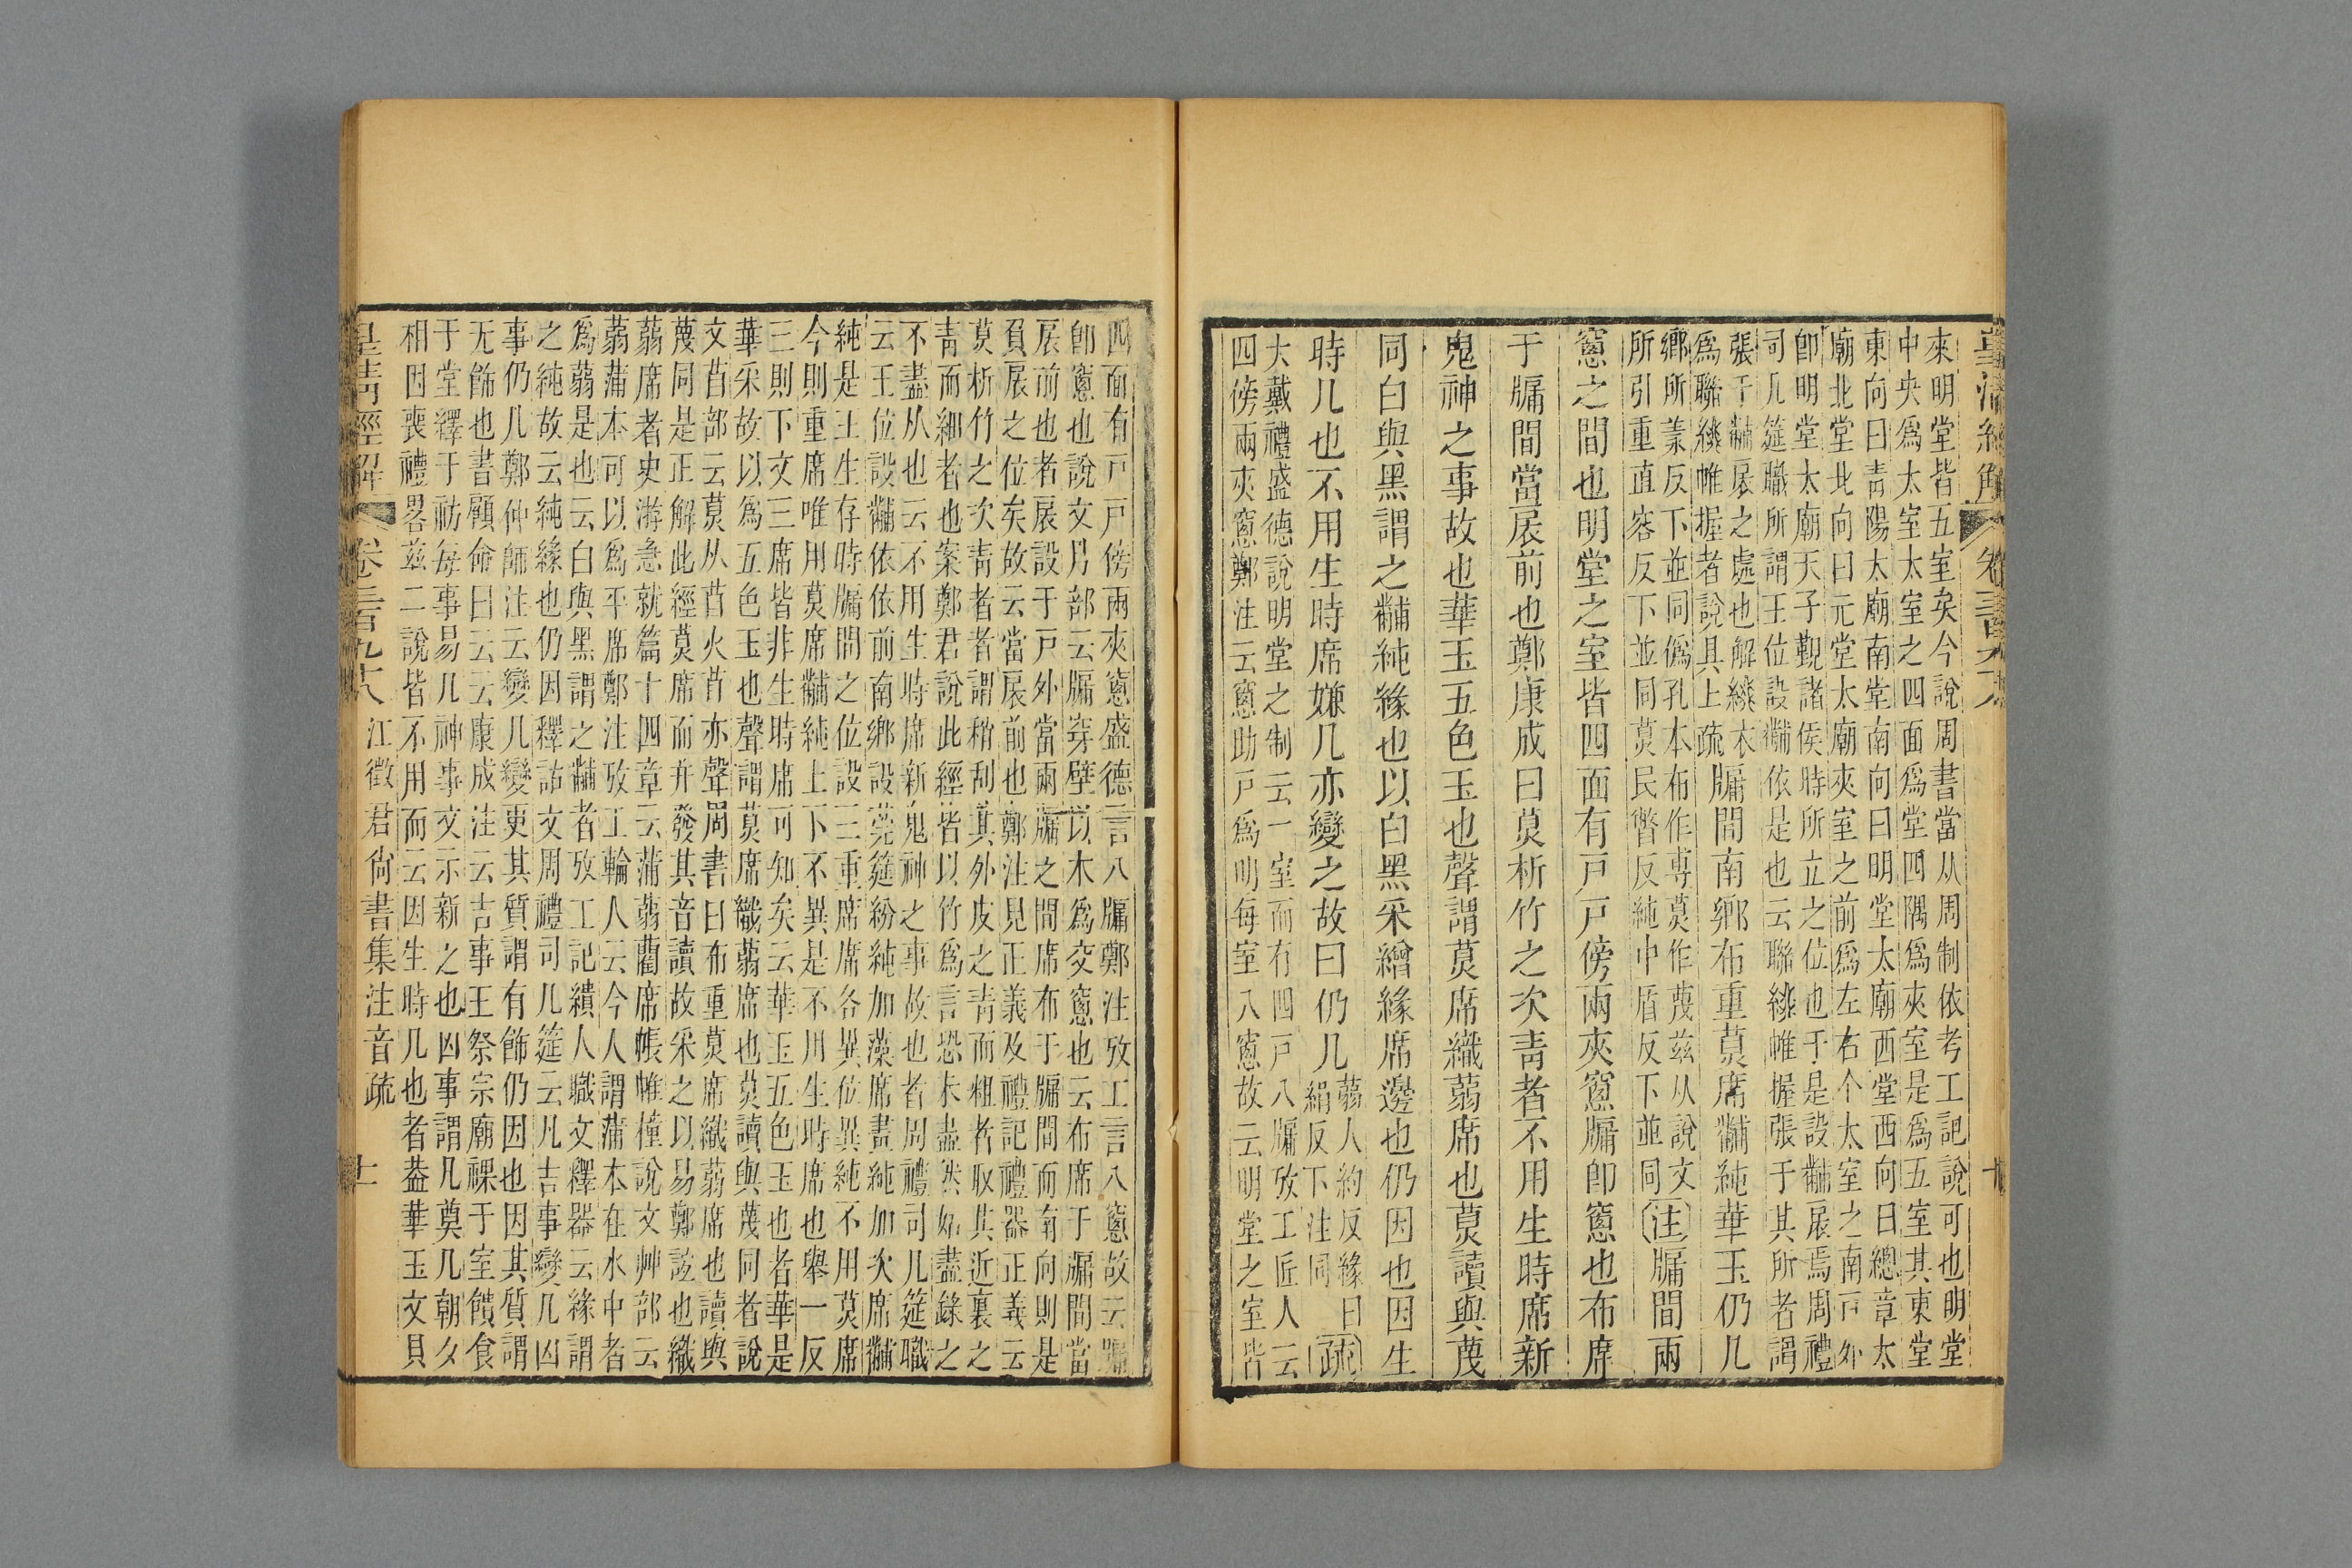 皇清經解 卷三百九十八 十
來明堂皆五室矣今說周書當从周制依考工記說可也明堂
中央爲太室太室之四面爲堂四隅爲夾室是爲五室其東堂
東向曰青陽太廟南堂南向曰明堂太廟西堂西向曰總章太
廟北堂北向曰元堂太廟夾室之前爲左右个太室之南戸外
卽明堂太廟天子覲諸侯時所立之位也于是設黼扆焉周禮
司几筵職所謂王位設黼依是也云聯綘帷握張于其所者謂
張于黼扆之處也解綘本
爲聯綘帷握者說具上疏
牖間南鄉布重莫席黼純華玉仍几
鄉所羕反下並同僞孔本布作専莫作蔑茲从說文
所引重直容反下並同莫民瞥反純中盾反下並同
注牖間兩
窻之間也明堂之室皆四面有戸戸傍兩夾窻牖卽窻也布席
于牖間當扆前也鄭康成曰莫析竹之次青者不用生時席新
鬼神之事故也華玉五色玉也聲謂莫席織蒻席也莫讀與蔑
同白與黑謂之黼純緣也以白黑采繒緣席邊也仍因也因生
時几也不用生時席嫌几亦變之故曰仍几
蒻人約反緣日
絹反下注同
疏
大戴禮盛德說明堂之制云一室而有四戸八牖攷工匠人云
四傍兩夾窻鄭注云窻助戸爲明每室八窻故云明堂之室皆
四面有戸戸傍兩夾窻盛德言八牖鄭注攷工言八窻故云牖
卽窻也說文片部云牖穿壁以木爲交窻也云布席于牖間當
扆前也者扆設于戸外當兩牖之間席布于牖間而南向則是
負扆之位矣故云當扆前也鄭注見正義及禮記禮器正義云
莫析竹之次青者者謂稍刮其外皮之青而粗者取其近裏之
青而細者也案鄭君說此經皆以竹爲言恐未盡然姑盡錄之
不盡从也云不用生時席新鬼神之事故也者周禮司几筵職
云王位設黼依依前南鄉設莞筵紛純加藻席畫純加次席黼
純是王生存時牖間之位設三重席席各異位異純不用莫席
今則重席唯用莫席黼純上下不異是不用生時席也舉一反
三則下文三席皆非生時席可知矣云華玉五色玉也者華是
華采故以爲五色玉也聲謂莫席織蒻席也莫讀與蔑同者說
文苜部云莫从苜火苜亦聲周書曰布重莫席織蒻席也讀與
蔑同是正解此經莫席而幷發其音讀故采之以易鄭說也織
蒻席者史游急就篇十四章云蒲蒻藺席帳帷橦說文艸部云
蒻蒲本可以爲平席鄭注攷工輪人云今人謂蒲本在水中者
爲蒻是也云白與黑謂之黼者攷工記繢人職文釋器云緣謂
之純故云純緣也仍因釋詁文周禮司几筵云凡吉事變几凶
事仍几鄭仲師注云變几變更其質謂有飾仍因也因其質謂
无飾也書顧命曰云云康成注云吉事王祭宗廟祼于室饋食
于堂繹于祊每事易几神事文示新之也凶事謂凡奠几朝夕
相因喪禮畧茲二說皆不用而云因生時几也者葢華玉文貝
皇清經解 卷三百九十八 江徵君尚書集注音疏 十一